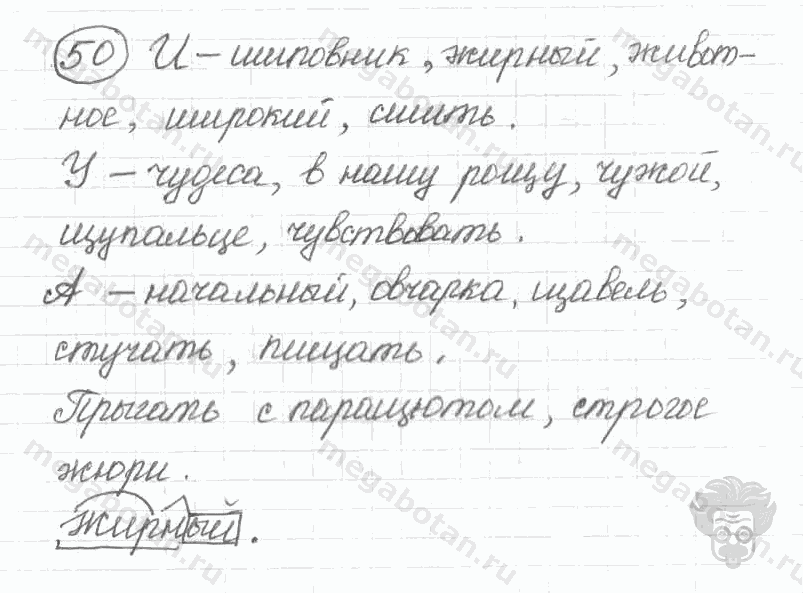 50 И – шиповник, жирный, живот-
ное, широкий, сшить.
У – чудеса, в нашу рощу, чужой,
щупальце, чувствовать.
А – начальный, овчарка, щавель,
стучать, пищать.
Прыгать с паращютом, строгое
жюри.
жирный.
megabotan.ru